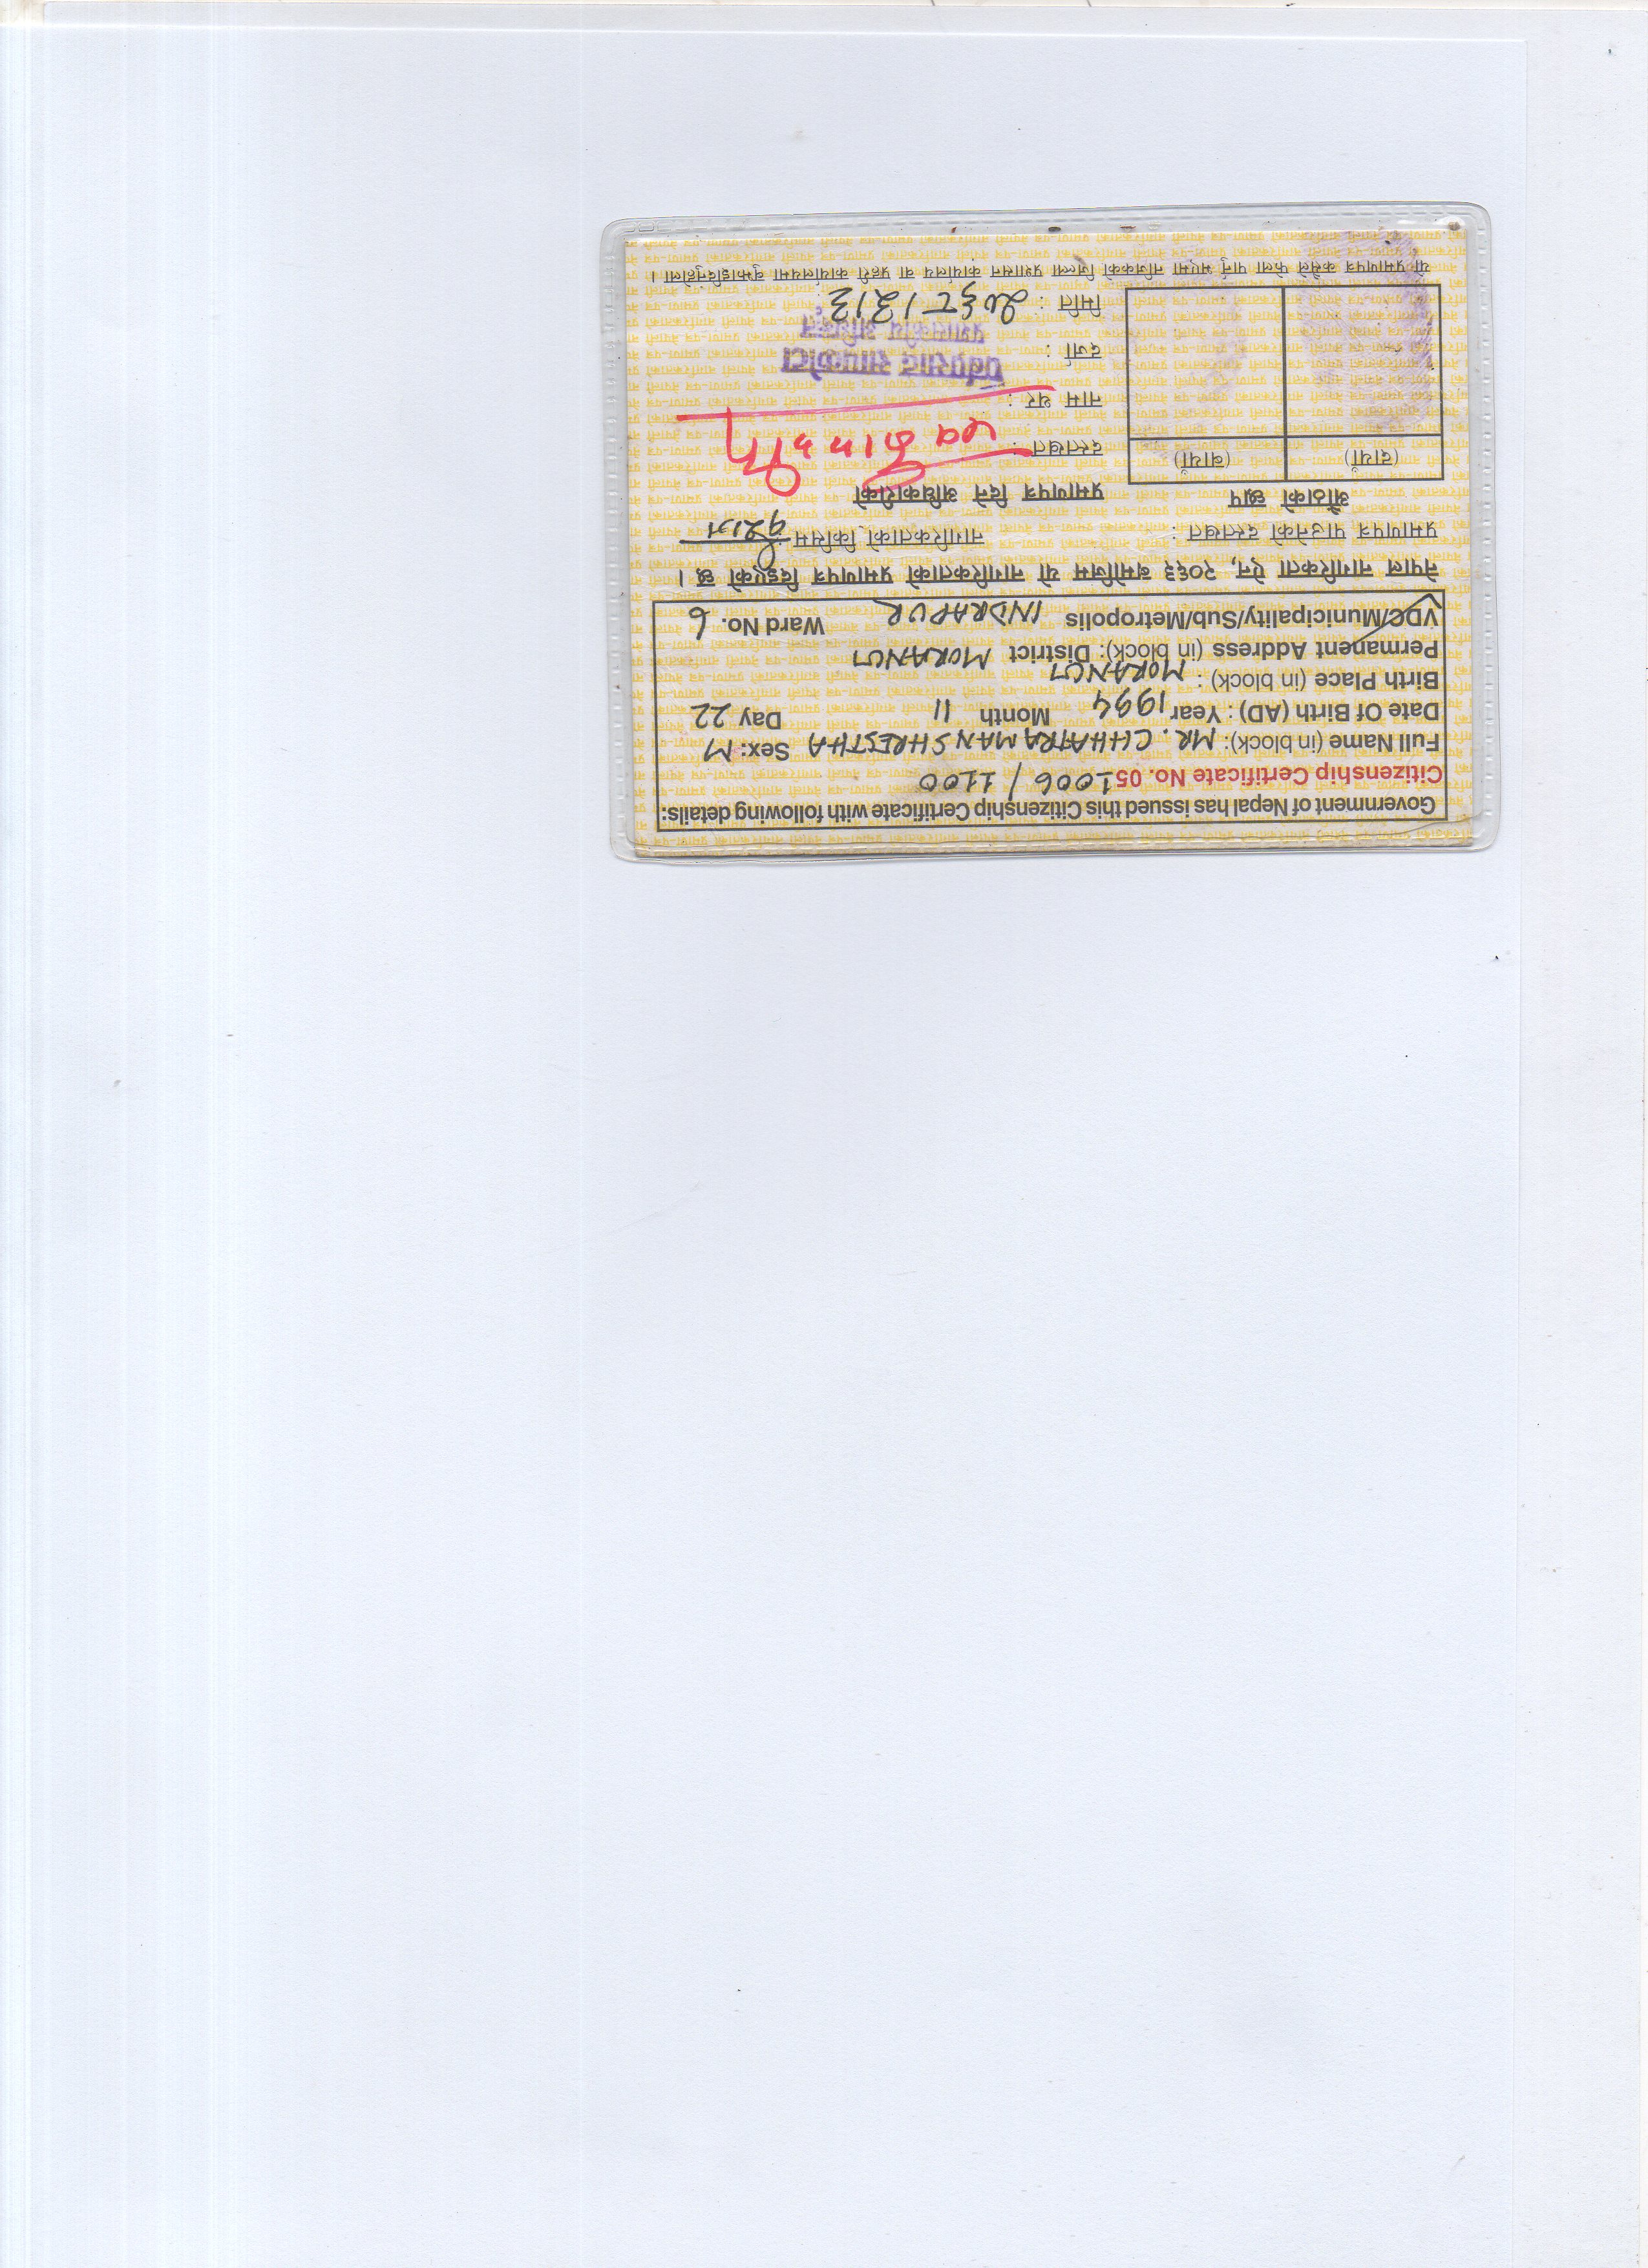 Government of Nepal has issued this Citizenship Certificate with following details:
Citizenship Certificate No. 051006 / 1100
Full Name (in block): MR. CHHATRAMAN SHRESTHA Sex: M
Date Of Birth (AD) : Year 1994 Month 11 Day 22
Birth Place (in block) : MORANG
Permanent Address (in block): District MORANG
VDC/Municipality/Sub/Metropolis INDRAPUR Ward No. 6
नेपाल नागरिकता ऐन, २०६३ बमोजिम यो नागरिकताको प्रमाणपत्र दिइएको छ ।
प्रमाणपत्र पाउनेको दस्तखत : नागरिकताको किसिम : वंशज
औंठाको छाप प्रमाणपत्र दिने अधिकारीको
(दायाँ) (बायाँ) दस्तखत :
नाम थर :
सापकोटा
दर्जा :
प्रशासकीय अधिकृत
मिति : २०६८।३।३
यो प्रमाणपत्र कसैले फेला पारे भएमा नजिकको जिल्ला प्रशासन कार्यालय वा प्रहरी कार्यालयमा बुझाइदिनुहोला ।